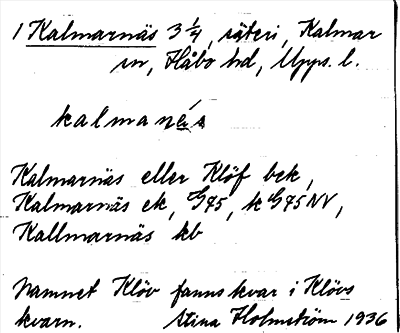 1 Kalmarnäs 3 1/4, säteri, Kalmar
sn, Håbo hd, Upps. l.
kalmanɛ́s
Kalmarnäs eller Klöf bek,
Kalmarnäs ek, G45, k G45NV,
Kallmarnäs kb
Namnet Klöv fanns kvar i Klövs
kvarn. Stina Holmström 1936